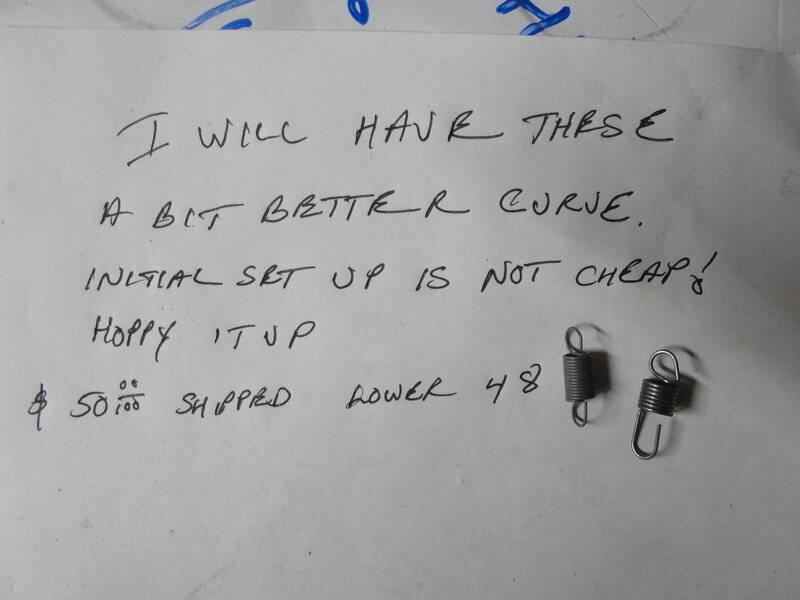 I WILL HAVE THESE
A BIT BETTER CURVE.
INITIAL SET UP IS NOT CHEAP!
HOPPY IT UP
$ 50 00/100 SHIPPED LOWER 48